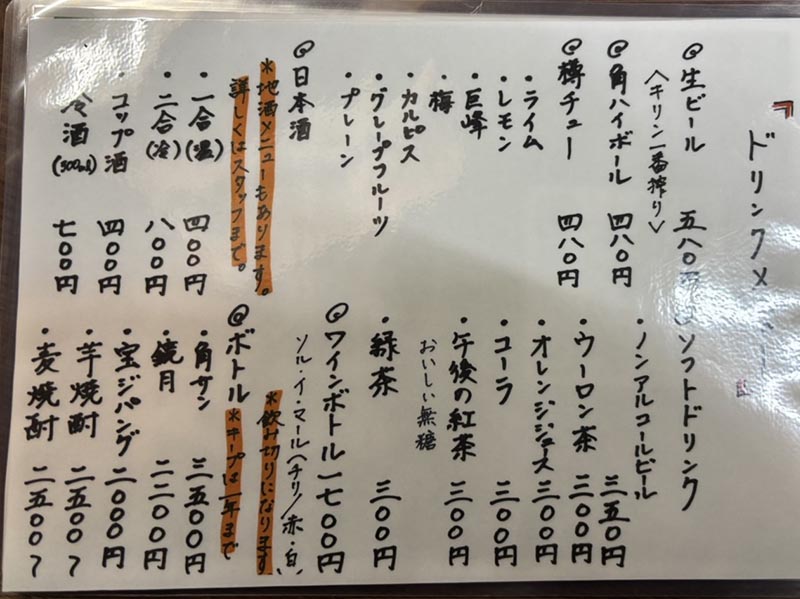 ドリンクメニュー
@生ビール 五八〇円
〈キリン一番搾り〉
@角ハイボール 四八〇円
@樽チュー 四八〇円
・ライム
・レモン
・巨峰
・梅
・カルピス
・グレープフルーツ
・プレーン
@日本酒
*地酒メニューもあります。
詳しくはスタッフまで。
・一合(温) 四〇〇円
・二合(冷) 八〇〇円
・コップ酒 四〇〇円
・冷酒(300ml) 七〇〇円
ソフトドリンク
・ノンアルコールビール 三五〇円
・ウーロン茶 三〇〇円
・オレンジジュース 三〇〇円
・コーラ 三〇〇円
・午後の紅茶 三〇〇円
おいしい無糖
・緑茶 三〇〇円
@ワインボトル 一七〇〇円
ソル・イ・マール(チリ/赤・白)
*飲み切りになります
@ボトル *キープは一年まで
・角サン 三五〇〇円
・鏡月 二二〇〇円
・宝ジパング 二〇〇〇円
・芋焼酎 二五〇〇~
・麦焼酎 二五〇〇~